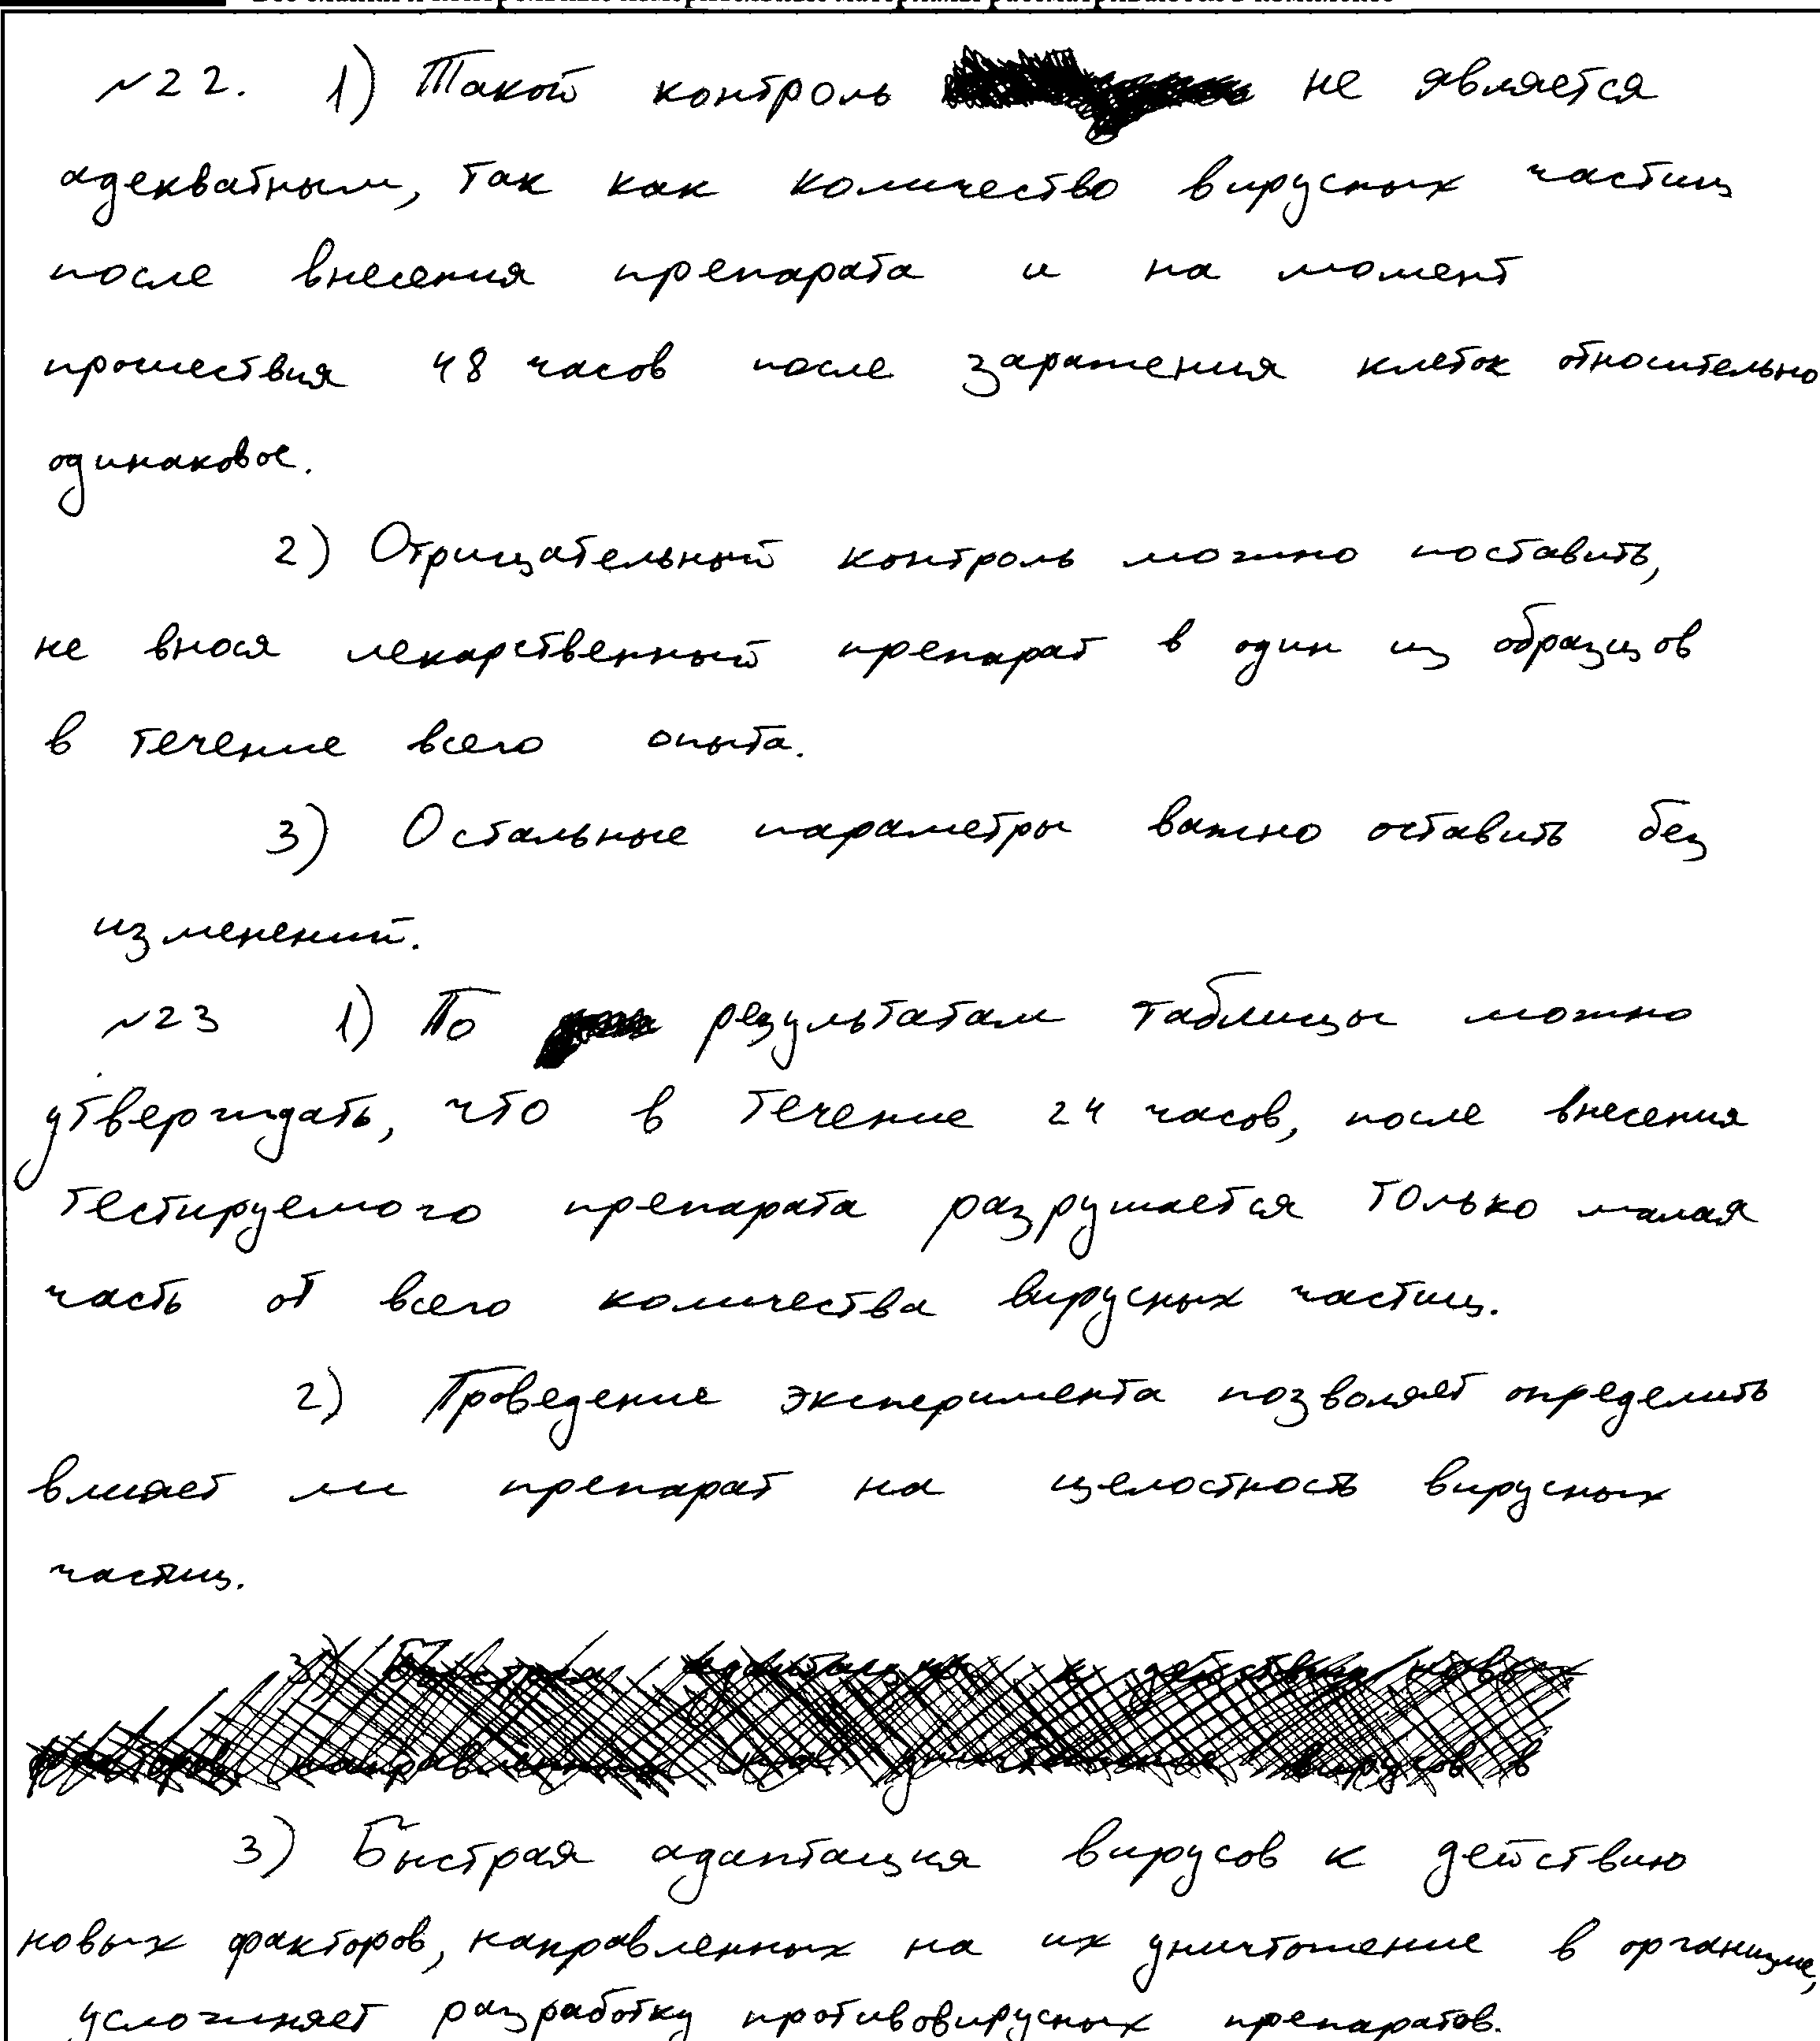 №22. 1) Такой контроль не является
адекватным, так как количество вирусных частиц
после внесения препарата и на момент
прошествия 48 часов после заражения клеток относительно
одинаковое.
2) Отрицательный контроль можно поставить,
не внося лекарственный препарат в один из образцов
в течение всего опыта.
3) Остальные параметры важно оставить без
изменений.
№23 1) По результатам таблицы можно
утверждать, что в течение 24 часов, после внесения
тестируемого препарата разрушается только малая
часть от всего количества вирусных частиц.
2) Проведение эксперимента позволяет определить
влияет ли препарат на целостность вирусных
частиц.
3) Быстрая адаптация вирусов к действию
новых факторов, направленных на их уничтожение в организме,
усложняет разработку противовирусных препаратов.